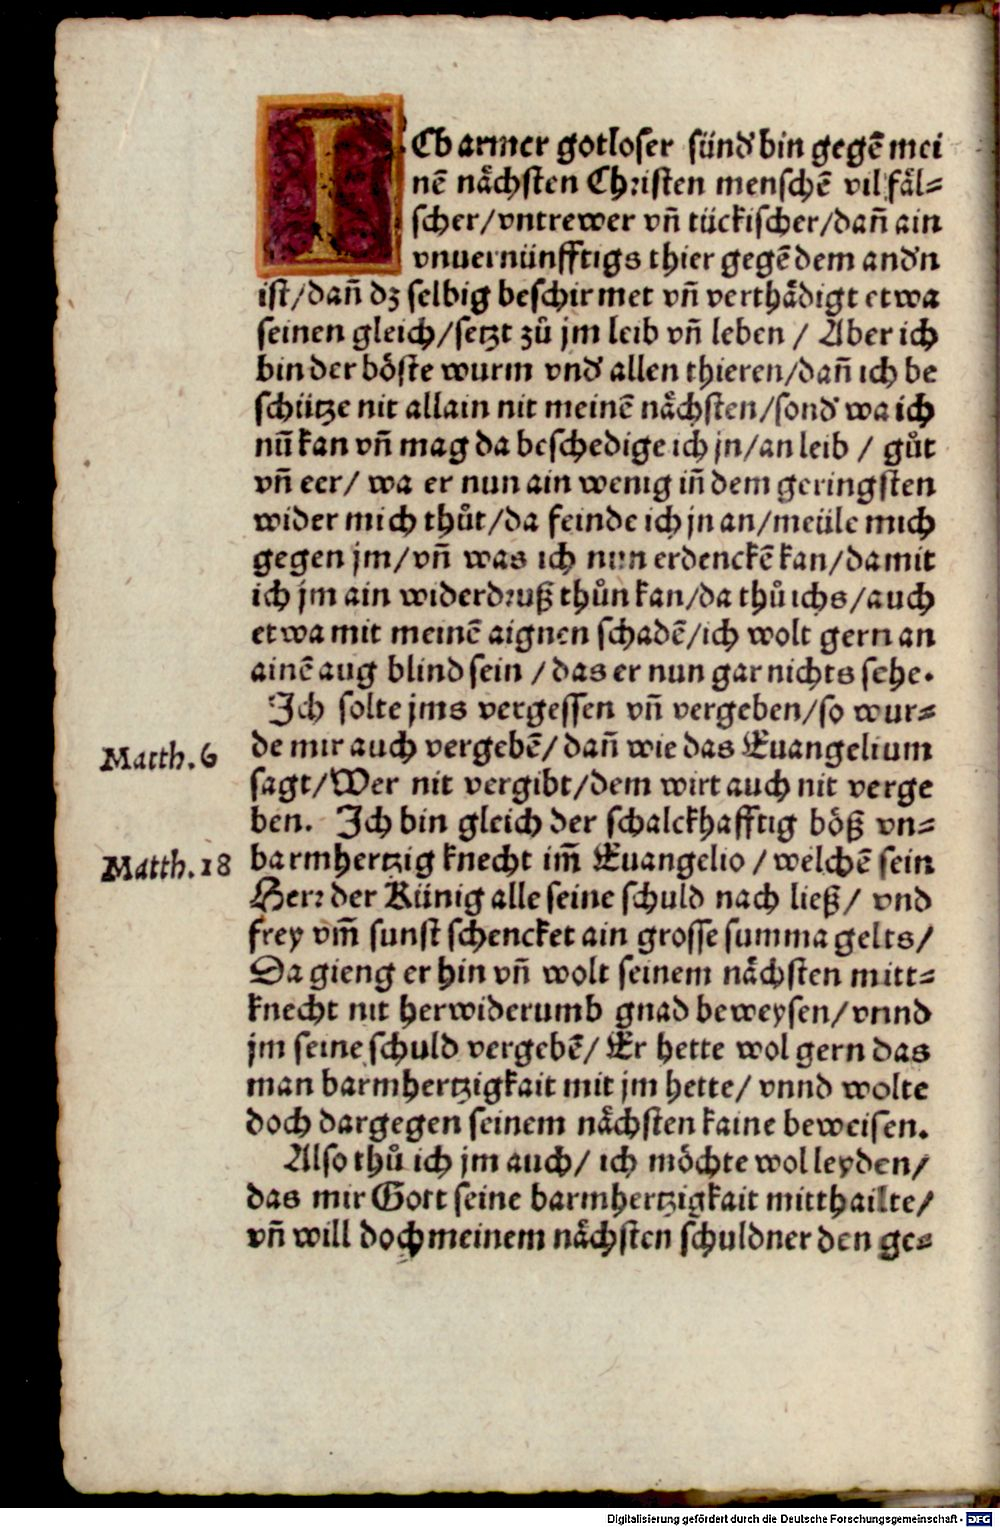 ICh armer gotloser sünd' bin gegē mei
nē nåchsten Christen menschē vil fäl=
scher/vntrewer vñ tückischer/dañ ain
vnuernünfftigs thier gegē dem and'n
ist/dañ dz selbig beschirmet vñ verthådigt etwa
seinen gleich/setzt zů jm leib vñ leben / Aber ich
bin der böste wurm vnd' allen thieren/dañ ich be
schütze nit allain nit meinē nåchsten/sond' wa ich
nũ kan vñ mag da beschedige ich jn/an leib / gůt
vñ eer/ wa er nun ain wenig iñ dem geringsten
wider mich thůt/da feinde ich jn an/meüle mich
gegen jm/vñ was ich nun erdenckē kan/damit
ich jm ain widerdruß thůn kan/da thů ichs/auch
etwa mit meinē aignen schadē/ich wolt gern an
ainē aug blind sein /das er nun gar nichts sehe.
Ich solte jms vergessen vñ vergeben/so wur=
Matth. 6 de mir auch vergebē/ dañ wie das Euangelium
sagt/Wer nit vergibt/dem wirt auch nit verge
ben. Ich bin gleich der schalckhafftig böß vn=
Matth. 18 barmhertzig knecht im̃ Euangelio / welchē sein
Herr der Künig alle seine schuld nach ließ/ vnd
frey vm̃ sunst schencket ain grosse summa gelts/
Da gieng er hin vñ wolt seinem nåchsten mitt=
knecht nit herwiderumb gnad beweysen/vnnd
jm seine schuld vergebē/ Er hette wol gern das
man barmhertzigkait mit jm hette/ vnnd wolte
doch dargegen seinem nåchsten kaine beweisen.
Also thů ich jm auch/ ich möchte wol leyden/
das mir Gott seine barmhertzigkait mitthailte/
vñ will doch meinem nåchsten schuldner den ge=
Digitalisierung gefördert durch die Deutsche Forschungsgemeinschaft - DFG